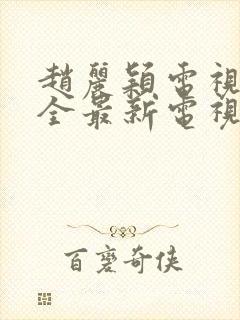 趙麗穎電視
全最新電視
百变奇侠